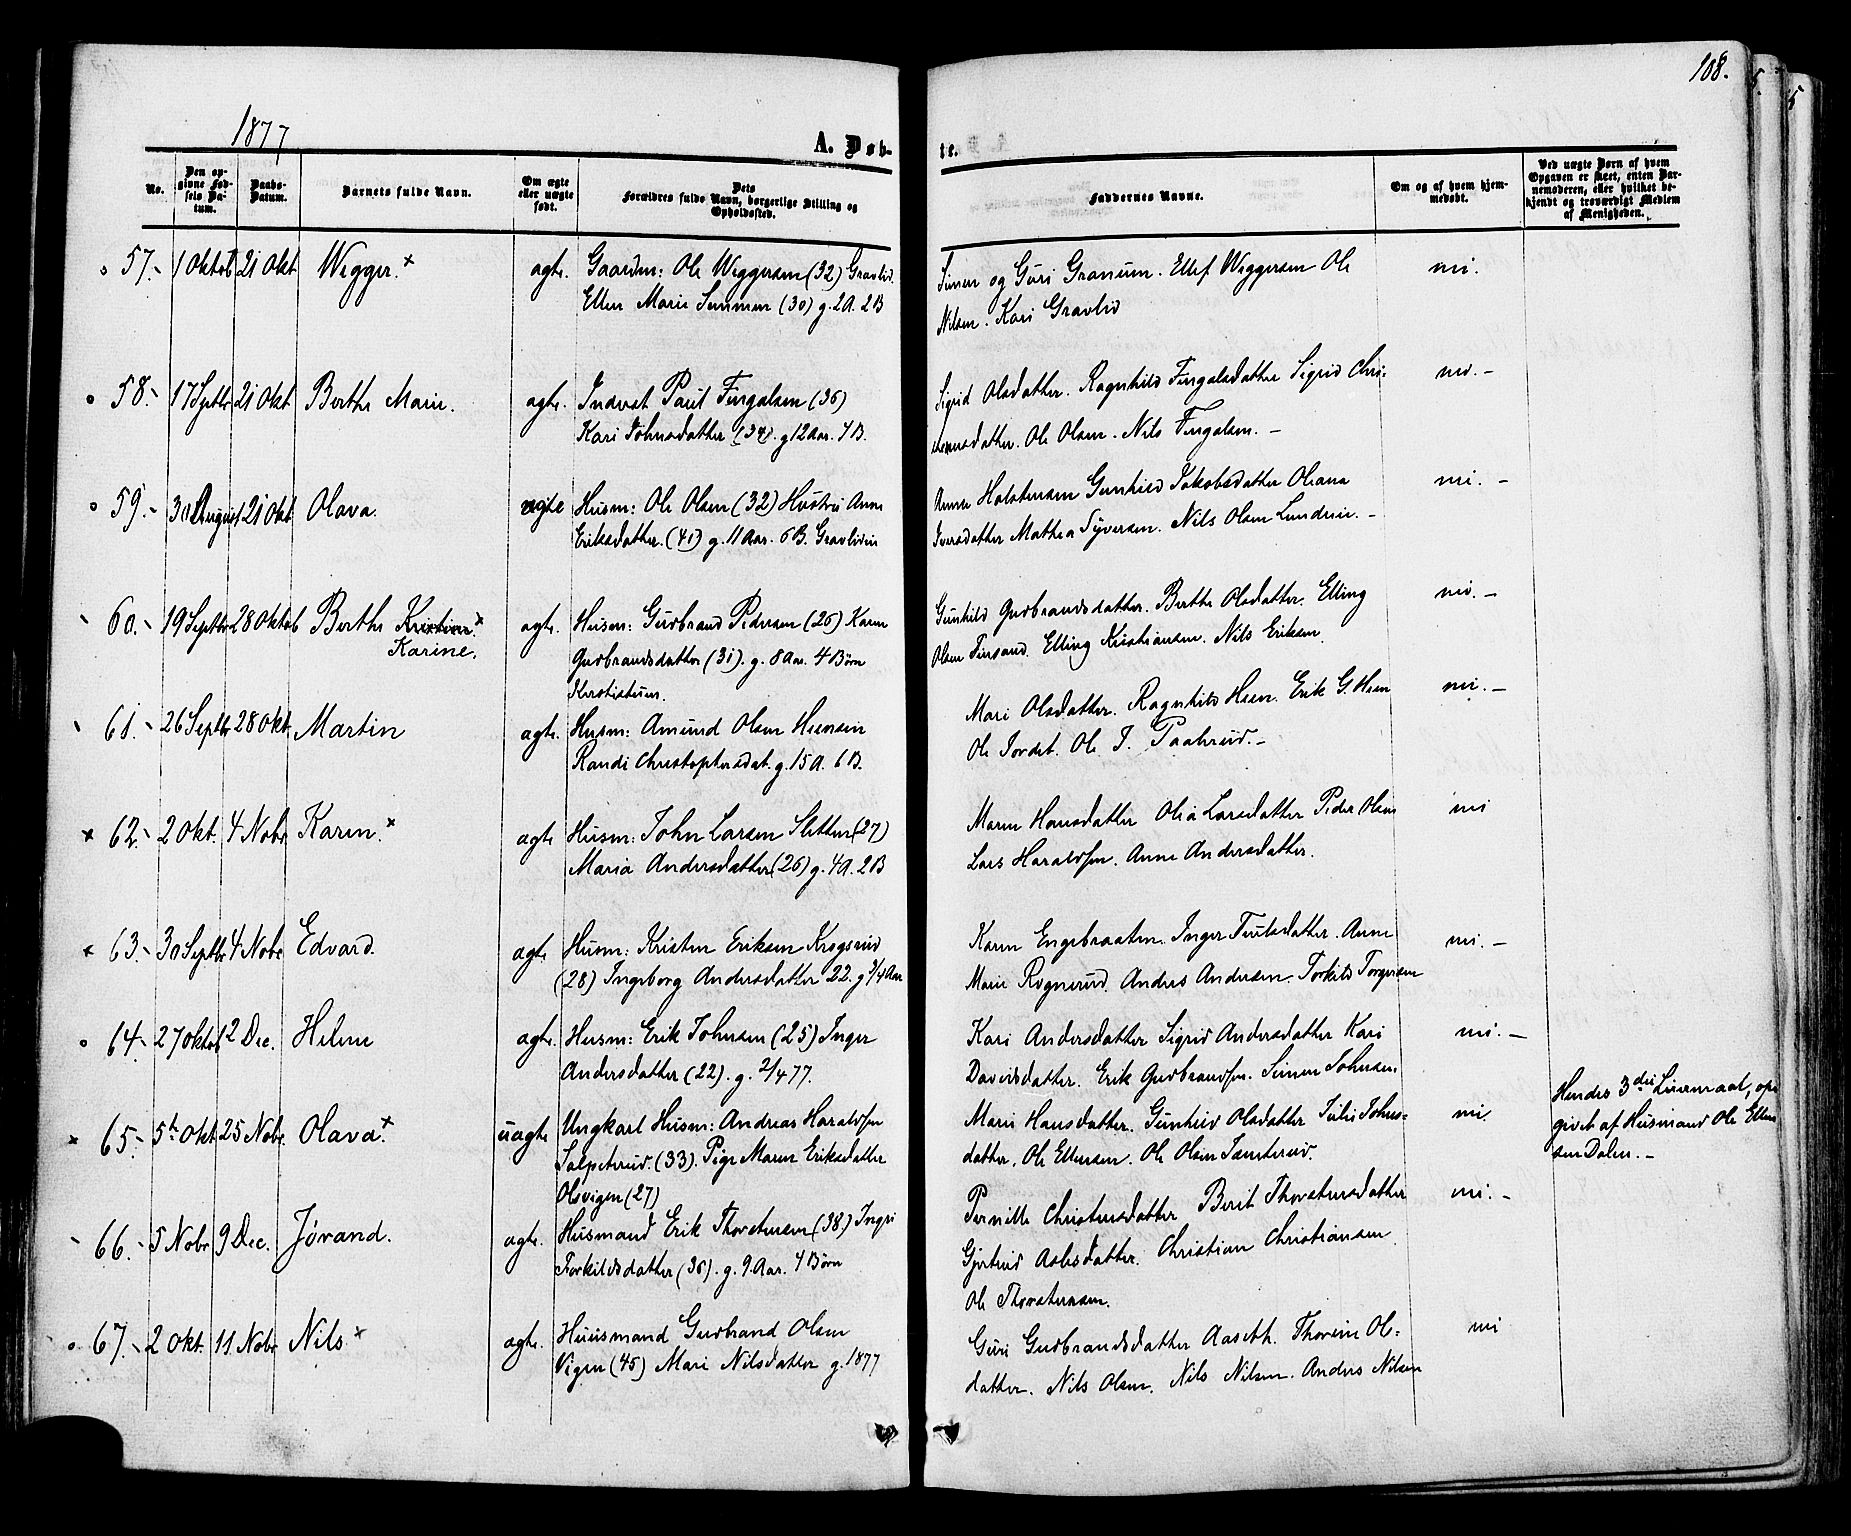 108.
1877
A. Døb-
te.
No.
Den op-
givne Fød-
sels Da-
tum.
Daabs-
Datum.
Barnets fulde Navn.
Om ægte
eller uægte
født.
Dets
Forældres fulde Navn, borgerlige Stilling og
Opholdssted.
Faddernes Navne.
Om og af hvem hjem-
medøbt.
Ved uægte Børn af hvem
Opgaven er skeet, enten Bar-
nemoderen, eller hvilket be-
kjendt og troværdigt Medlem
af Menigheden.
57. 1 Oktob 21 Okt Wegger. ægte. Gaardm: Ole Weggersen (32) Gravlid.
Ellen Marie Simensen (30) g. 2 A. 2 B
Simen og Guri Granum. Ellef Weggersen Ole
Nilsen. Kari Gravlid
ni.
58. 17 Septbr 21 Okt Berthe Marie. ægte. Inderst Paul Fingalsen (36)
Kari Johnsdatter (34). g 12 Aar. 7 B.
Sigrid Olsdatter. Ragnhild Fingalsdatter Sigrid Chri-
stensdatter. Ole Olsen. Nils Fingalsen. –
ni. –
59. 30 August 21 Okt. Olava. ægte Husm: Ole Olsen (32) Hustru Anne
Eriksdatter. (41) g. 11 Aar. 6 B. Gravlideie
Anne Halstensen Gunhild Jakobsdatter Oleana
Iversdatter Mathea Syversen. Nils Olsen Lundeie. –
ni. –
60. 19 Septbr 28 Oktob Berthe Kristine.
Karine.
ægte. Husm: Gudbrand Pedersen (26) Karen
Gudbrandsdatter (31). g. 8 Aar. 4 Børn
Gunhild Gudbrandsdatter. Berthe Olsdatter. Elling
Olsen Finsand. Elling Kristiansen. Nils Eriksen.
ni. –
61. 26 Septbr 28 Okt. Martin ægte. Husm: Amund Olsen Heensein
Randi Christophersdat. g. 15 A. 6 B.
Mari Olsdatter. Ragnhild Heen. Erik G. Heen
Ole Jordet. Ole J. Paalsrud. –
ni. –
62. 2 Okt. 4 Nobr Karen. ægte Husm: John Larsen Sletten (27)
Maria Andersdatter (26) g. 4 A. 2 B
Maren Hansdatter Olia Larsdatter Peder Olsen
Lars Haraldsen. Anne Andersdatter.
ni
63. 30 Septbr 4 Nobr Edvard. ægte. Husm: Kristen Eriksen Krogsrud
(28) Ingeborg Andersdatter 22. g 3/4 Aar
Karen Engebraaten. Inger Truulsdatter. Anne
Marie Rognerud. Anders Andersen. Torkild Torgersen
ni. –
64. 27 Oktob 2 Dec. Helene ægte. Husm: Erik Johnsen (25) Inger
Andersdatter (22). g. 2/4 77.
Kari Andersdatter Sigrid Andersdatter Kari
Davidsdatter. Erik Gudbrandsen. Simen Johnsen.
ni. –
65. 5te Okt 25 Nobr. Olava. uægte Ungkarl Husm: Andreas Haraldsen
Salpeterud. (33). Pige Maren Eriksdatter
Olsvigen (27)
Mari Hansdatter. Gunhild Olsdatter Julie Johns-
datter. Ole Ellensen. Ole Olsen Sandrud.
ni.
Hendes 3die Leiermaal, op-
givet af Husmand Ole Ellen
sen Dalen. –
66. 5 Nobr 9 Dec. Jørand. ægte. Husmand Erik Thorstensen (38) Ingri
Torkildsdatter (36). g. 9 Aar. 4 Børn
Pernille Christensdatter Berit Thorstensdatter
Gjertrud Aslesdatter. Christian Christiansen
Ole Thorstensen.
ni. –
67. 2 Okt. 11 Nobr Nils. ægte. Huusmand Gudbrand Olsen
Vigen (45) Mari Nilsdatter g. 1877
Guri Gudbrandsdatter Aaseth. Thorine Ols-
datter. Nils Olsen. Nils Nilsen. Anders Nilsen
ni